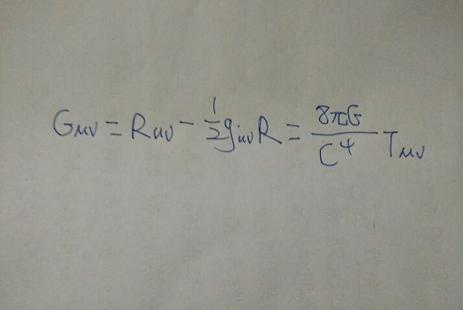 Gμν = Rμν - 1/2 gμν R = 8πG/C⁴ Tμν